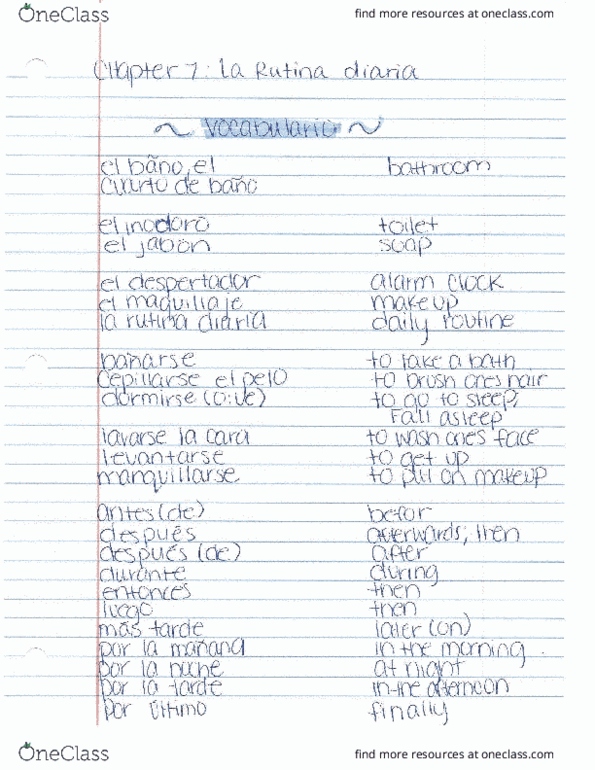 OneClass find more resources at oneclass.com
Chapter 7: La Rutina diaria
~ Vocabulario ~
el baño, el bathroom
cuarto de baño
el inodoro toilet
el jabón soap
el despertador alarm clock
el maquillaje makeup
la rutina diaria daily routine
bañarse to take a bath
cepillarse el pelo to brush ones hair
dormirse (o:ue) to go to sleep,
fall asleep
lavarse la cara to wash ones face
levantarse to get up
manquillarse to put on makeup
antes (de) befor
después afterwards, then
después (de) after
durante during
entonces then
luego then
más tarde later (on)
por la mañana in the morning
por la noche at night
por la tarde in the afternoon
por último finally
OneClass find more resources at oneclass.com